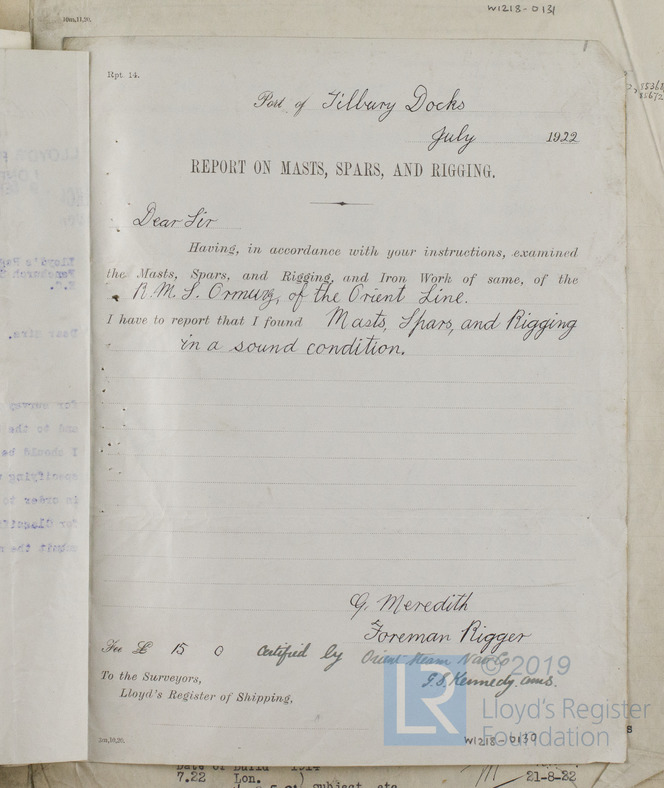 W1218-0131
10m,11,20.
Rpt. 14.
Port of Tilbury Docks
July 1922
REPORT ON MASTS, SPARS, AND RIGGING.
Dear Sir
Having, in accordance with your instructions, examined
the Masts, Spars, and Rigging, and Iron Work of same, of the
R.M.S. Ormuz, of the Orient Line.
I have to report that I found Masts, Spars, and Rigging
in a sound condition.
G. Meredith
Foreman Rigger
Fee £ 15 0 Certified by Orient Steam Nav Co
J.S. Kennedy.
To the Surveyors,
Lloyd's Register of Shipping,
© 2019
LR
Lloyd's Register
Foundation
W1218-0130
2m,10,20.
Date of Build 1914
7.22 Lon. ) 21-8-22
subject etc